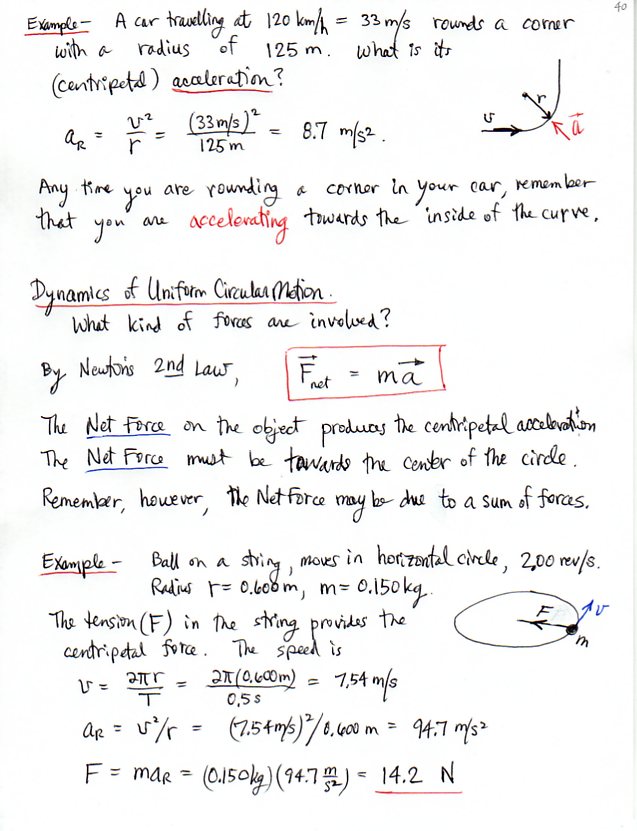 40
Example - A car travelling at 120 km/h = 33 m/s rounds a corner
with a radius of 125 m. What is its
(centripetal) acceleration?
r
v
a⃗
a_R = v²/r = (33 m/s)²/125 m = 8.7 m/s².
Any time you are rounding a corner in your car, remember
that you are accelerating towards the inside of the curve.
Dynamics of Uniform Circular Motion.
What kind of forces are involved?
By Newton's 2nd Law, F⃗_net = ma⃗
The Net Force on the object produces the centripetal acceleration
The Net Force must be towards the center of the circle.
Remember, however, the Net Force may be due to a sum of forces.
Example - Ball on a string, moves in horizontal circle, 2.00 rev/s.
Radius r = 0.600 m, m = 0.150 kg.
The tension (F) in the string provides the
centripetal force. The speed is
F
v
m
v = 2πr/T = 2π(0.600m)/0.5 s = 7.54 m/s
a_R = v²/r = (7.54 m/s)²/0.600 m = 94.7 m/s²
F = ma_R = (0.150 kg)(94.7 m/s²) = 14.2 N